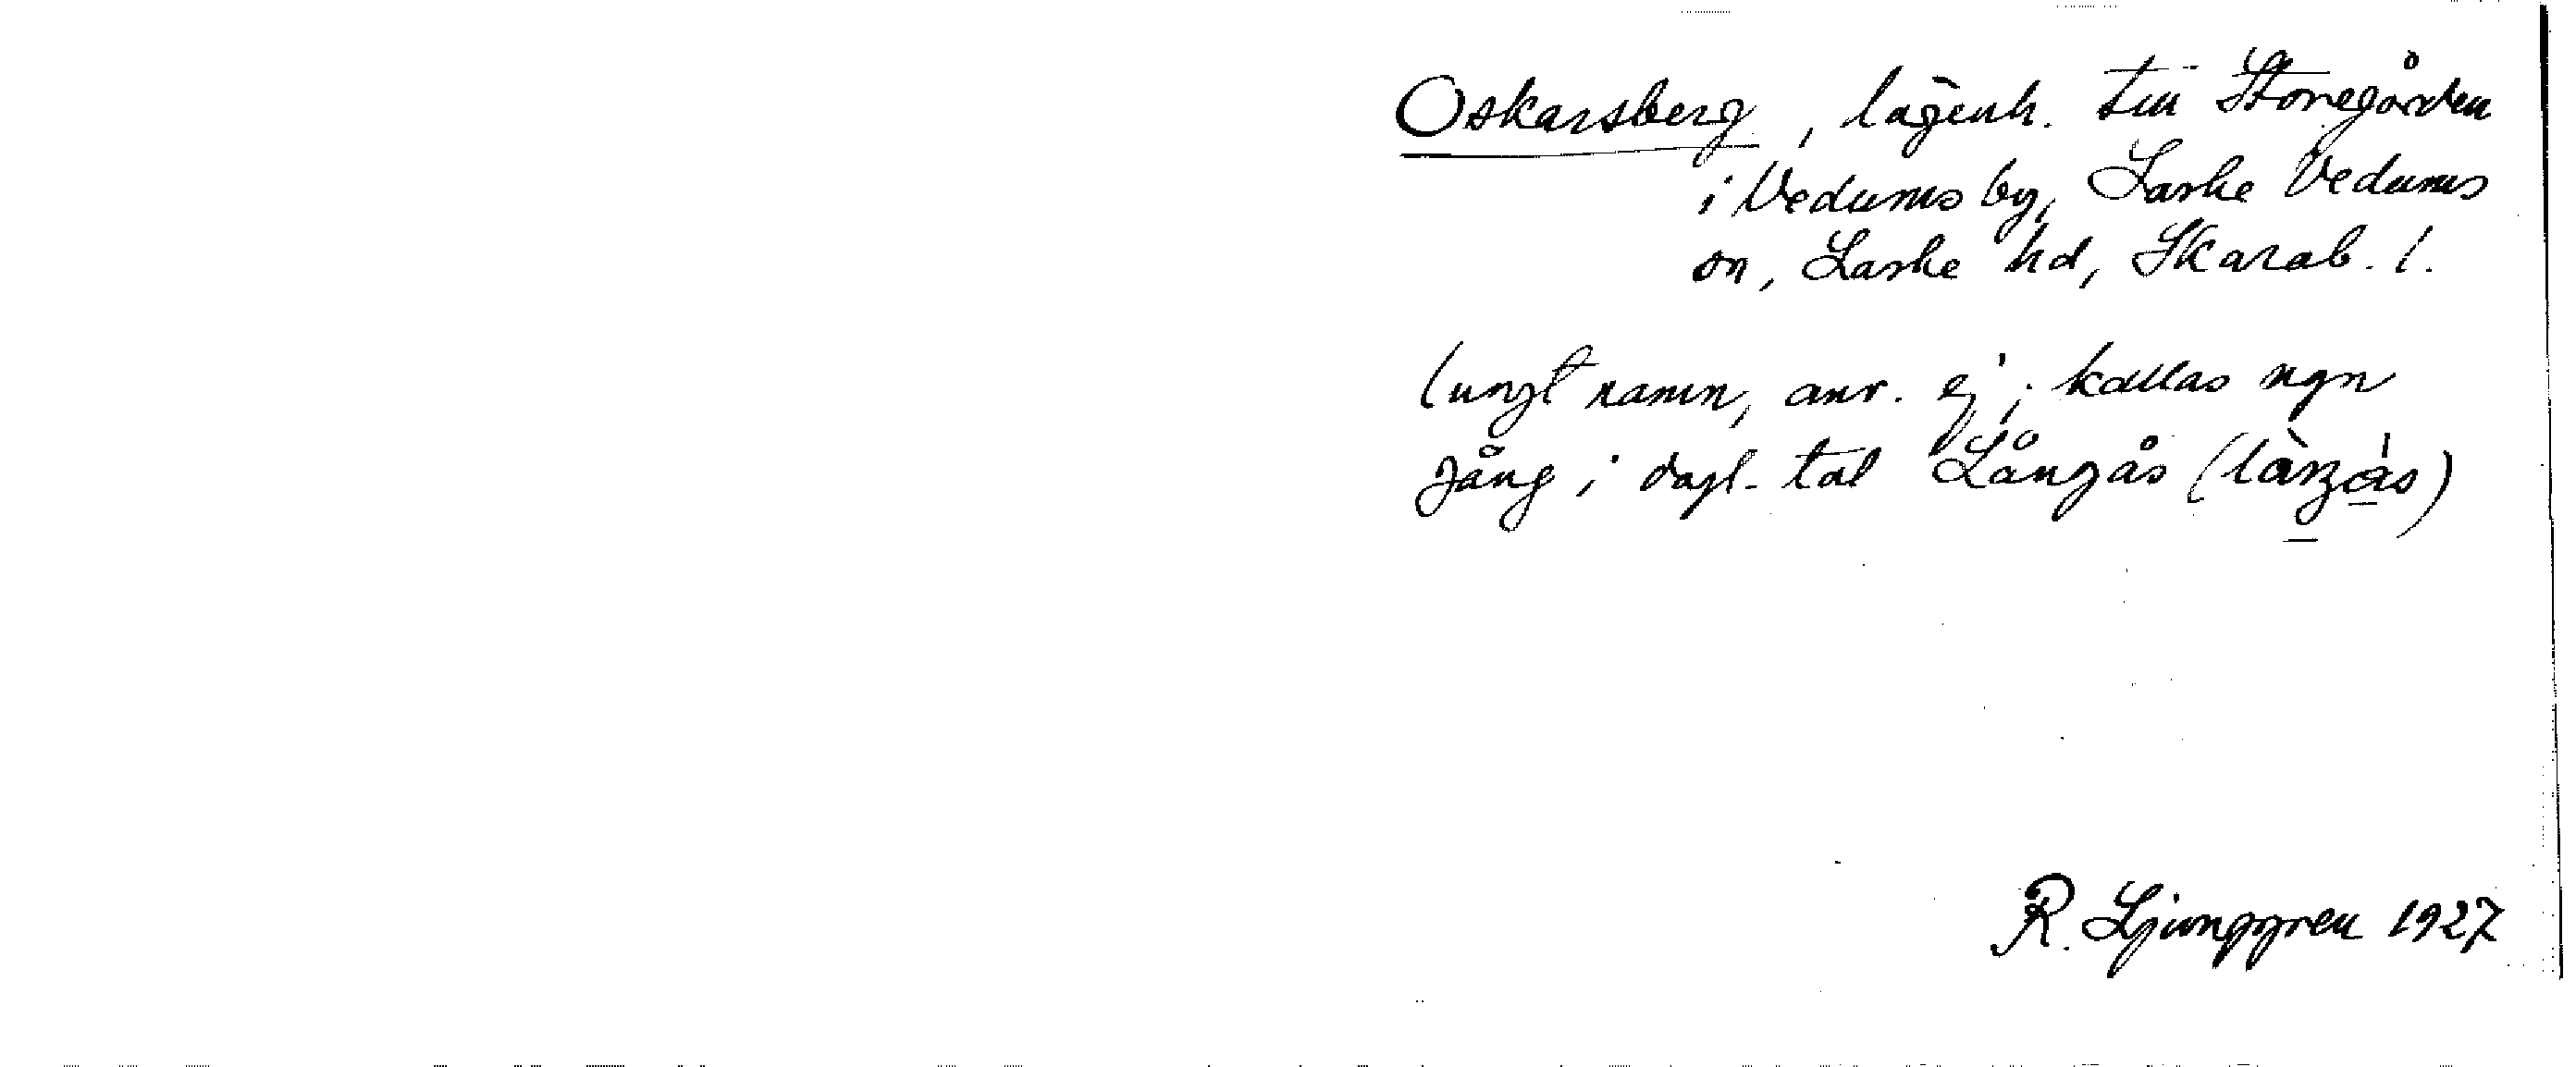 Oskarsberg, lägenh. till Storegården
i Vedums by, Laske Vedums
sn, Laske hd, Skarab. l.
(ungt namn, anv. ej; kallas ngn
gång i dagl. tal Långås
R. Ljunggren 1927